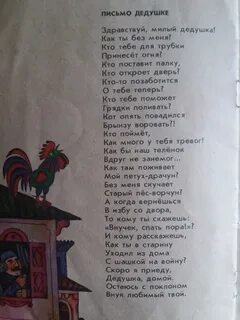 ПИСЬМО ДЕДУШКЕ
Здравствуй, милый дедушка!
Как ты без меня?
Кто тебе для трубки
Принесёт огня?
Кто поставит палку,
Кто откроет дверь?
Кто-то позаботится
О тебе теперь?
Кто тебе поможет
Грядки поливать?
Кот опять повадился
Брынзу воровать?!
Кто поймёт,
Как много у тебя тревог!
Как бы наш телёнок
Вдруг не занемог...
Как там поживает
Мой петух-драчун?
Без меня скучает
Старый пёс-ворчун?
А когда вернёшься
В избу со двора,
То кому ты скажешь:
«Внучек, спать пора!»?
И кому расскажешь,
Как ты в старину
Уходил из дома
С шашкой на войну?
Скоро я приеду,
Дедушка, домой.
Остаюсь с поклоном
Внук любимый твой.